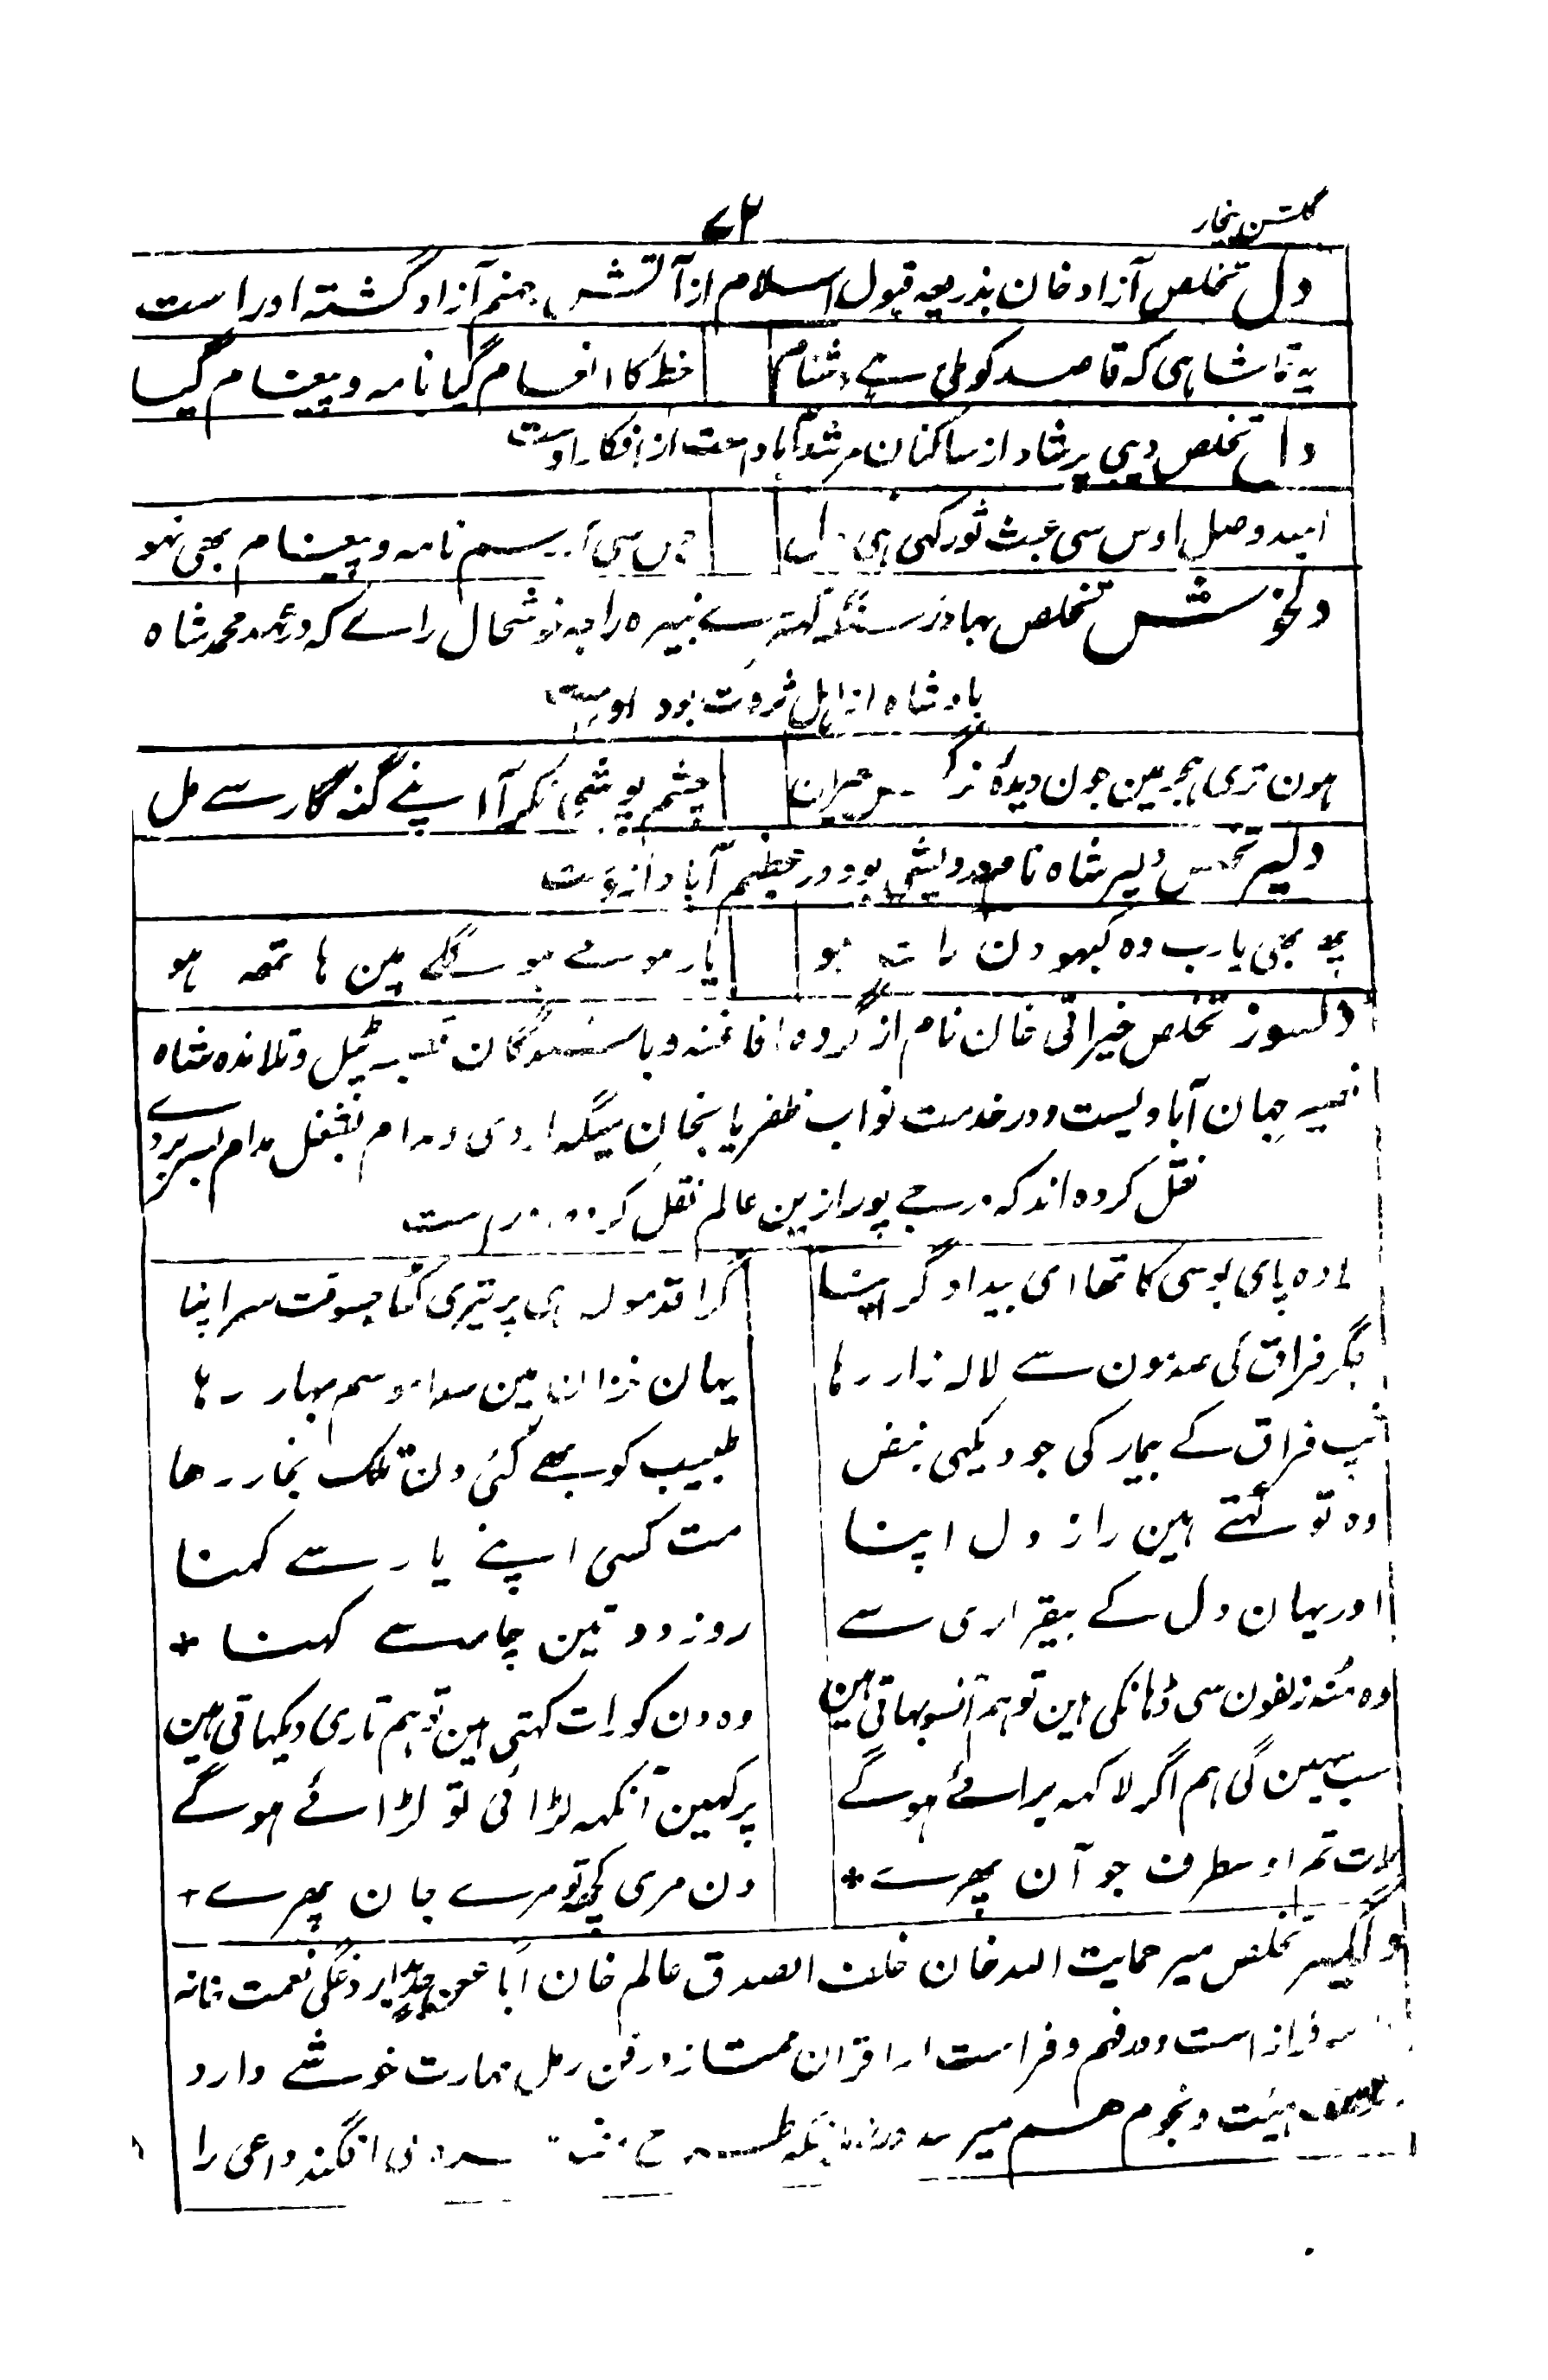 گلشن بیخار
۷۲
دل تخلص آزاد خان بذریعہ قبول اسلام از آتش جہنم آزاد گشتہ اوراست
یہ تماشا ہی کہ قاصد کو ملی ہے دشنام خط کا انعام گیا نامہ و پیغام گیا
دل تخلص دیبی پرشاد از ساکنان مرشدآباد است از افکار اوست
امید وصل اوس سی عبث تو رکھی ہی دل سی رسم نامہ و پیغام بھی نہو
دلخوش تخلص بہادر سنگہ نبیرہ راجہ خوشحال راے کہ در عہد محمد شاہ
بادشاہ از اہل ثروت بود
ہون تری ہجر مین جون دیدۂ نرگس حیران چشم پوشی نکر آ اپنے گنہ گار سے مل
دلیر تخلص دلیر شاہ نام درویشی بود در عظیم آباد ازوست
یہ بھی یارب وہ کبہو دن رات ہو یار ہو گلے مین ہاتھ ہو
دلسوز تخلص خیراتی خان نام از گروہ افاغنہ و باشندگان و تلامذہ شاہ
نصیر جہان آبادیست و در خدمت نواب ظفریابخان و مدام بشغل مدام بسر بردے
نقل کردہ اند کہ در جے پور ازین عالم نقل کرد
وہ پای بوسی کا تھا ای بیداد گر اپنا گرا قدمون ہی پر تیری کٹا جسوقت سر اپنا
جگر فراق کی سے لالہ زار رہا یہان خزان مین سدا موسم بہار رہا
تپ فراق کے بیمار کی جو دیکہی نبض طبیب کو بھے کئی دن تلک بخار رہا
وہ تو کہتے ہین راز دل اپنا مت کسی اپنے یار سے کہنا
اور یہان دل کے بیقراری سے روز دو تین چار سے کہنا +
وہ منہ زلفون سی ڈہانکی ہین تو ہم آنسو بہاتی ہین وہ دن کو رات کہتی ہین تو ہم تاری دیکہاتی ہین
سب سہین گی ہم اگر لاکہہ برائے ہوگے پر کہین آنکہہ لڑائی تو لڑائے ہوگے
رات تم اوسطرف جو آن پھرے + دن مری کچھ تو مرے جان پھرے +
دلگیر تخلص میر حمایت اللہ خان خلف الصدق عالم خان نعمت خانہ
سرفراز است و در فہم و فراست از اقران ممتاز در فن رمل مہارت خوشے دارد
ہیئت و نجوم ہم میرسد افگند داعی را